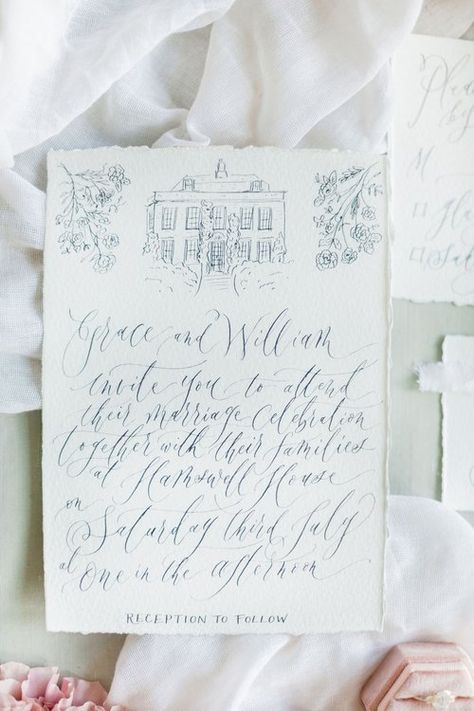 Grace and William
invite you to attend
their marriage celebration
together with their families
at Hamswell House
on
Saturday third July
at One in the afternoon
RECEPTION TO FOLLOW
by
M